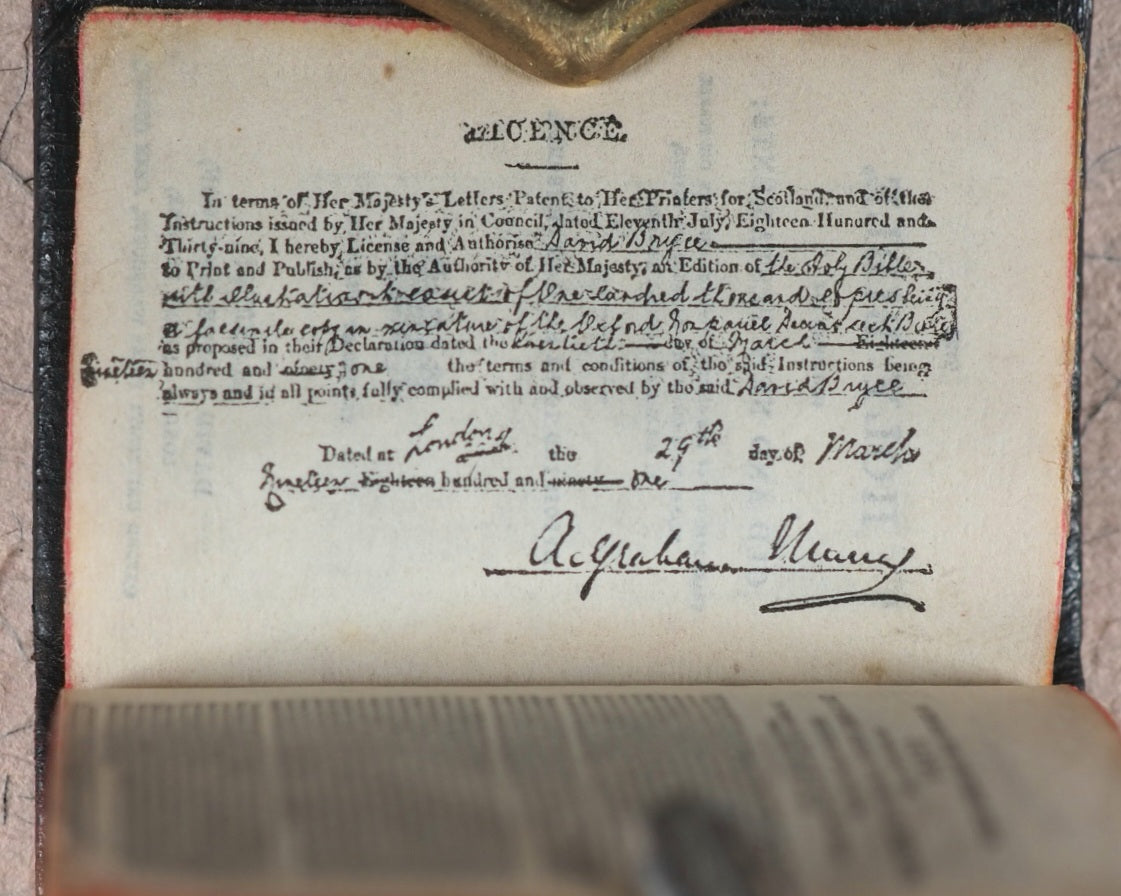 LICENCE.
In terms of Her Majesty's Letters Patent to Her Printers for Scotland and of the
Instructions issued by Her Majesty in Council, dated Eleventh July, Eighteen Hundred and
Thirty-nine, I hereby License and Authorise David Bryce
to Print and Publish, as by the Authority of Her Majesty, an Edition of the Holy Bible
with illustrations to consist of One hundred thousand copies being
a facsimile copy in miniature of the Oxford Nonpareil Bible
as proposed in their Declaration dated the day of March Eighteen
Nineteen hundred and ninety one the terms and conditions of the said Instructions being
always and in all points fully complied with and observed by the said David Bryce
Dated at London the 29th day of March
Nineteen Eighteen hundred and ninety One
A. Graham Murray